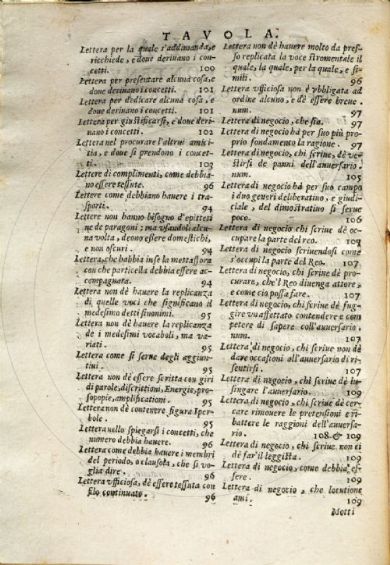 TAVOLA.
Lettera per la quale s'addimanda, e
ricchiede, e donde derivano i con
cetti. 100
Lettera per presentare alcuna cosa, e
donde derivano i concetti. 101
Lettera per dedicare alcuna cosa, e
donde derivano i concetti. 101
Lettera per giustificarsi, e donde deri
vano i concetti. 102
Lettera nel procurare l'altrui amici
tia, e donde si prendono i concet-
ti. 103
Lettere di complimenti, come debbia
no essere tessute. 96
Lettere come debbiano havere i tra-
sporti. 94
Lettere non hanno bisogno d'epitteti
ne de paragoni; ma usandoli alcu-
na volta, deono essere domestichi,
e non oscuri. 94
Lettera, che habbia in se la mettaffora
con che particella debbia essere ac-
compagnata. 94
Lettera non dè havere la replicanza
di quelle voci che significano il
medesimo detti sinonimi. 95
Lettera non dè havere la replicanza
de i medesimi vocaboli, ma va-
riati. 95
Lettera come si serve degli aggiun-
tivi. 95
Lettera non dè essere scritta con giri
di parole, discrittioni, Energie, pro-
sopopie, amplificationi. 95
Lettera non dè contenere figura Iper-
bole. 95
Lettera nello spiegarsi i concetti, che
numero debbia havere. 95
Lettera come debbia havere i membri
del periodo, o clausola, che si vo-
glia dire. 96
Lettera ufficiosa, dè essere tessuta con
filo continuato. 96
Lettera non dè havere molto da pres-
so replicata la voce stromentale il
quale, la quale, per la quale, e si-
mili. 96
Lettera ufficiosa non è ubbligata ad
ordine alcuno, e dè essere breve.
num. 97
Lettera di negocio, che sia. 97
Lettera di negocio ha per suo più pro-
prio fondamento la ragione. 97
Lettera di negocio, chi scrive, dè ve-
stirsi de panni dell'avversario.
num. 105
Lettera di negocio ha per suo campo
i duo generi deliberativo, e giudi-
ciale, del dimostrativo si serve
poco. 106
Lettera di negocio chi scrive dè oc-
cupare la parte del reo. 107
Lettera di negocio scrivendosi come
s'occupi la parte del Reo. 107
Lettera di negocio, chi scrive dè pro-
curare, che'l Reo divenga attore,
e come ciò possa fare. 107
Lettera di negocio, chi scrive dè fug-
gire un affettato contendere e com
petere di sapere coll'avversario.
num. 107
Lettera di negocio, chi scrive non dè
dare occasioni all'avversario di ri-
sentirsi. 107
Lettera di negocio, chi scrive dè lu-
singare l'avversario. 109
Lettera di negocio, chi scrive dè cer-
care rimovere le pretensioni e ri-
battere le raggioni dell'avversa-
rio. 108 & 109
Lettera di negocio, chi scrive non ci
dè far'il leggista. 109
Lettera di negocio, come debbia es-
sere. 109
Lettera di negocio, che locutione
ami. 109
Motti